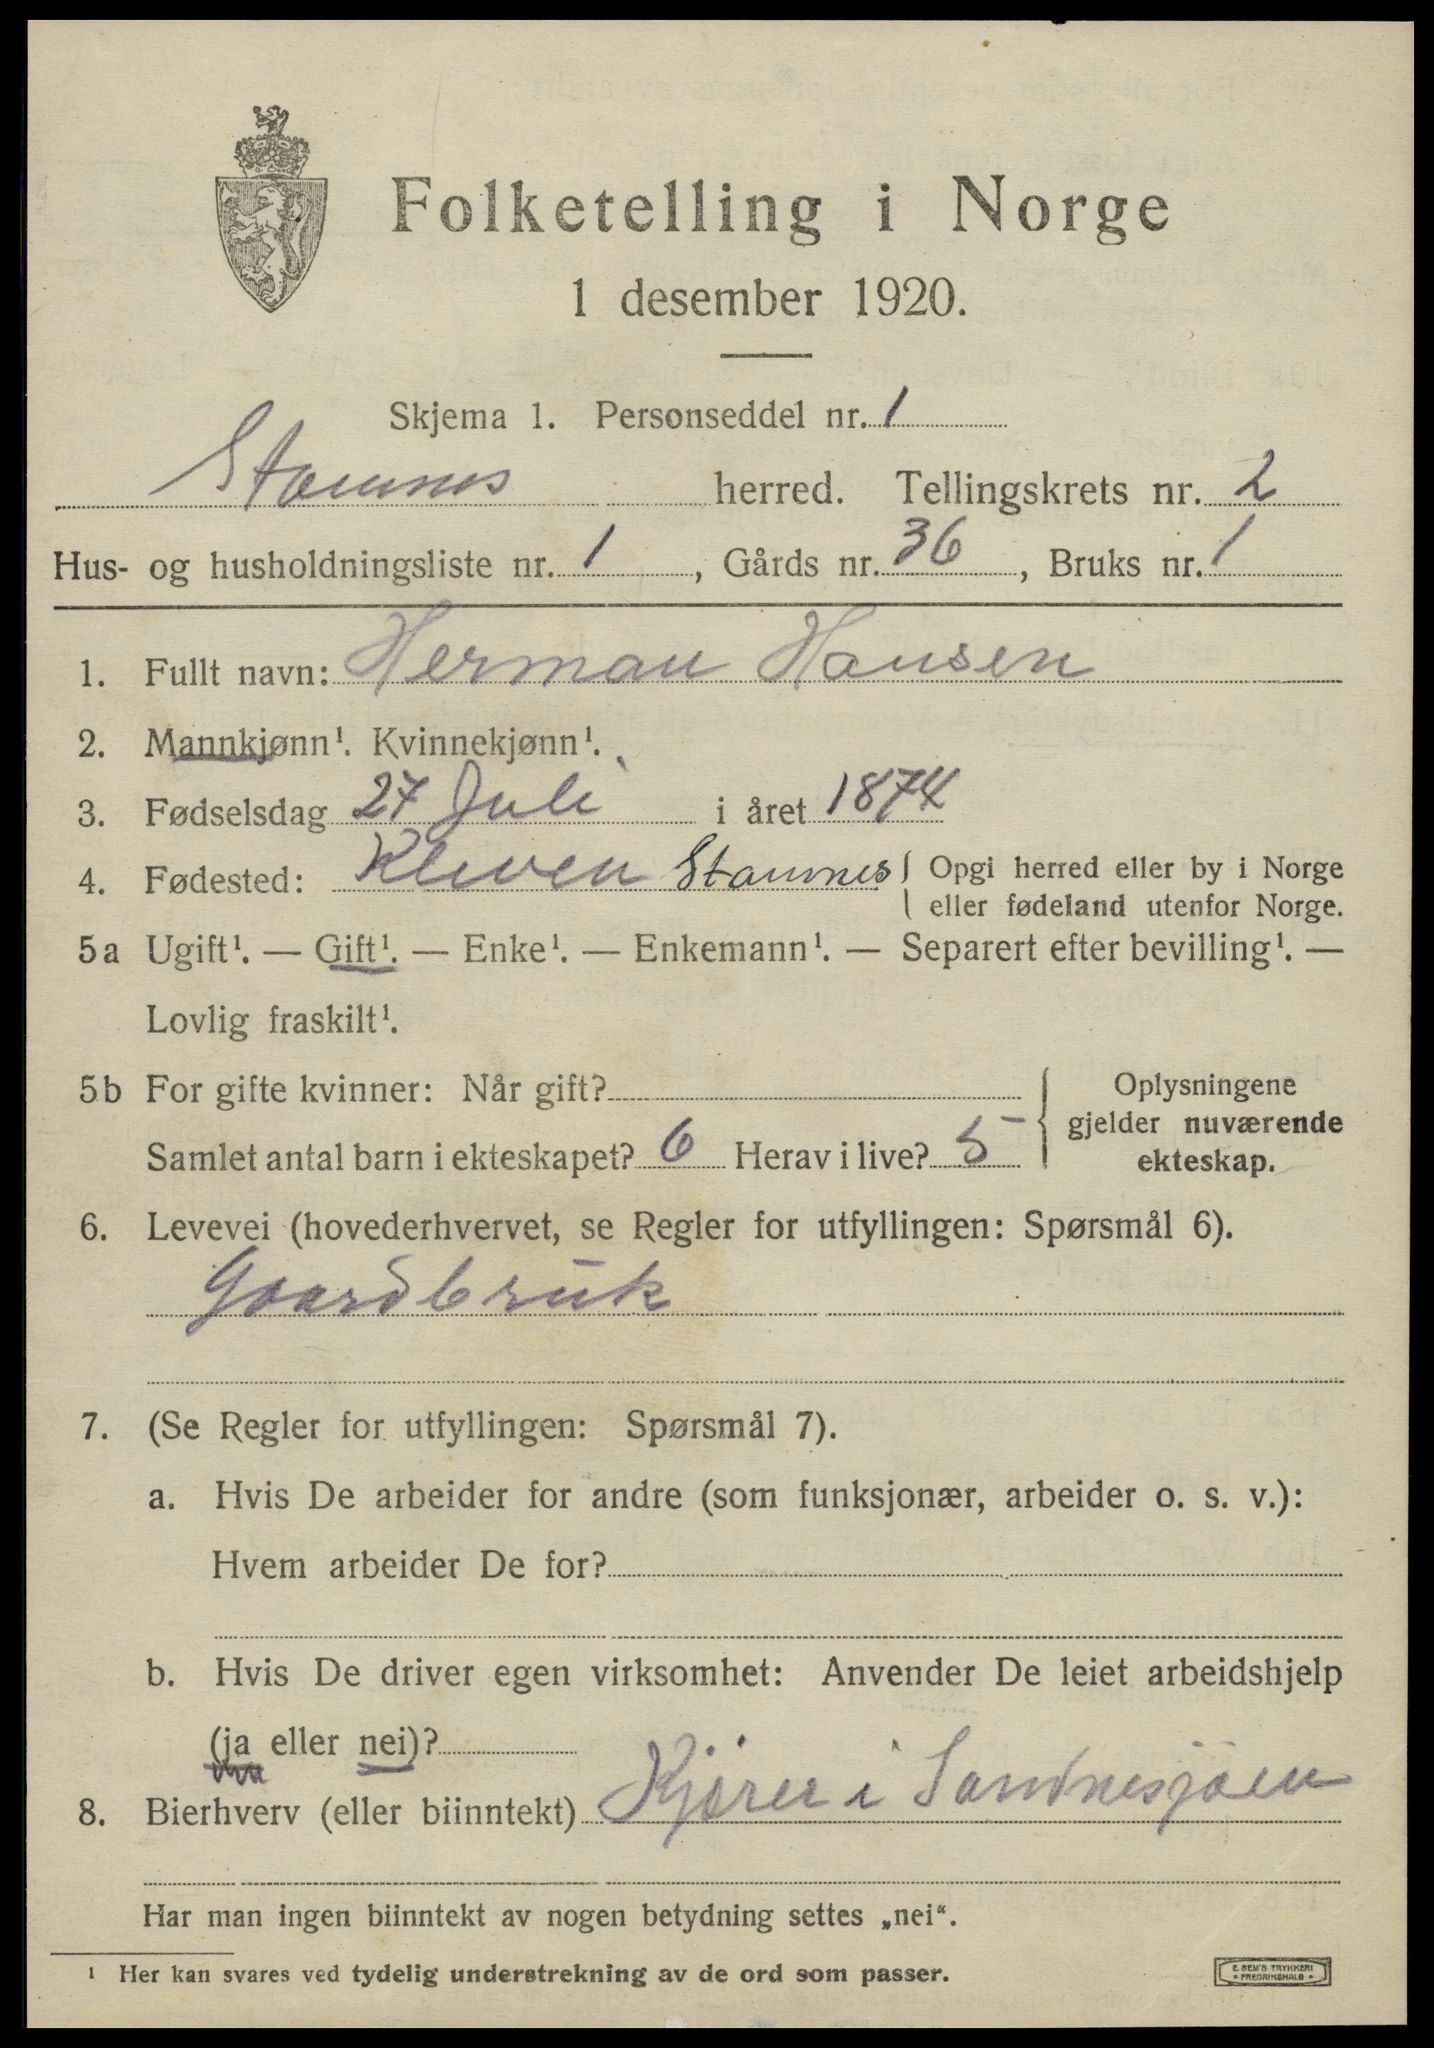 Folketelling i Norge
1 desember 1920.
Skjema 1. Personseddel nr. 1
Stamnes herred. Tellingskrets nr. 2
Hus- og husholdningsliste nr. 1, Gårds nr. 36, Bruks nr. 1
1. Fullt navn: Herman Hansen
2. Mannkjønn¹. Kvinnekjønn¹.
3. Fødselsdag 27 Juli i året 1874
4. Fødested: Kleven Stamnes { Opgi herred eller by i Norge
eller fødeland utenfor Norge.
5a Ugift¹. — Gift¹. — Enke¹. — Enkemann¹. — Separert efter bevilling¹. —
Lovlig fraskilt¹.
5b For gifte kvinner: Når gift?
Samlet antal barn i ekteskapet? 6 Herav i live? 5
Oplysningene
gjelder nuværende
ekteskap.
6. Levevei (hovederhvervet, se Regler for utfyllingen: Spørsmål 6).
Gaardbruk
7. (Se Regler for utfyllingen: Spørsmål 7).
a. Hvis De arbeider for andre (som funksjonær, arbeider o. s. v.):
Hvem arbeider De for?
b. Hvis De driver egen virksomhet: Anvender De leiet arbeidshjelp
(ja eller nei)?
8. Bierhverv (eller biinntekt) Kjører i Sandnesjøen
Har man ingen biinntekt av nogen betydning settes „nei“.
¹ Her kan svares ved tydelig understrekning av de ord som passer.
E. SEM'S TRYKKERI
• FREDRIKSHALD •